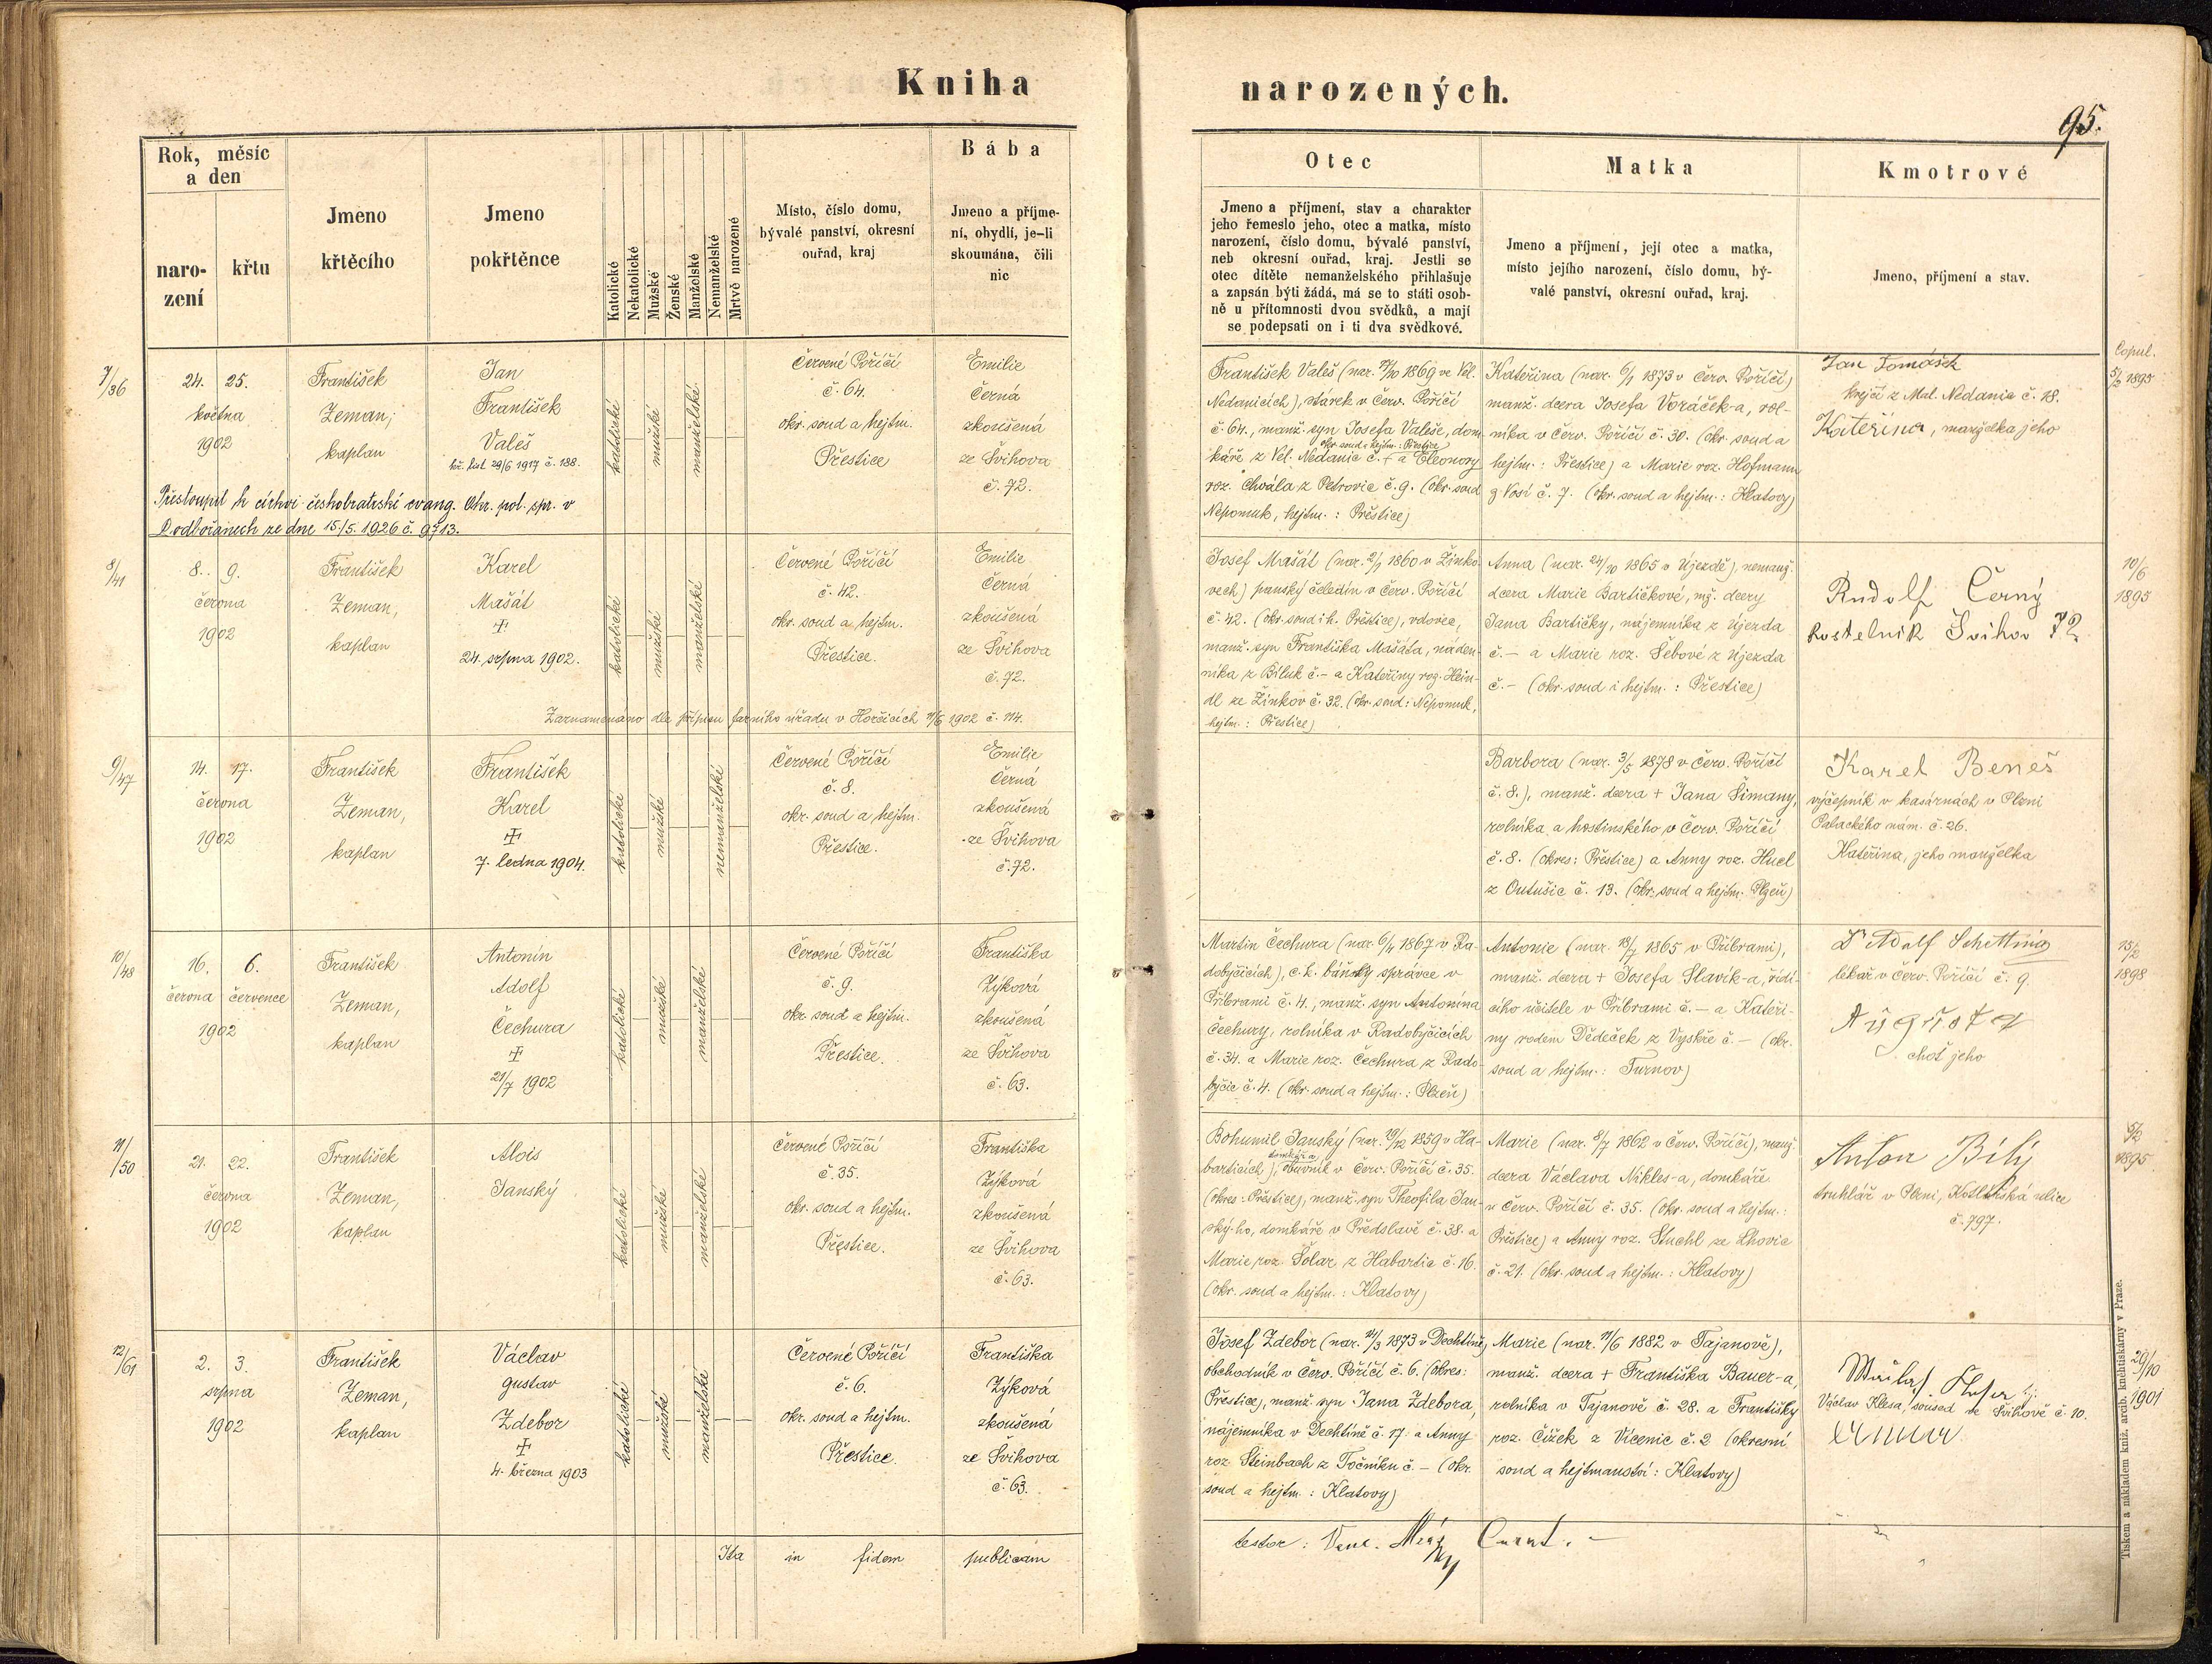 Kniha
narozených.
95.
Rok, měsíc
a den
naro-
zení
křtu
Jmeno
křtěcího
Jmeno
pokřtěnce
Katolické
Nekatolické
Mužské
Ženské
Manželské
Nemanželské
Mrtvě narozené
Místo, číslo domu,
bývalé panství, okresní
ouřad, kraj
Bába
Jmeno a příjme-
ní, obydlí, je-li
skoumána, čili
nic
Otec
Jmeno a příjmení, stav a charakter
jeho řemeslo jeho, otec a matka, místo
narození, číslo domu, bývalé panství,
neb okresní ouřad, kraj. Jestli se
otec dítěte nemanželského přihlašuje
a zapsán býti žádá, má se to státi osob-
ně u přítomnosti dvou svědků, a mají
se podepsati on i ti dva svědkové.
Matka
Jmeno a příjmení, její otec a matka,
místo jejího narození, číslo domu, bý-
valé panství, okresní ouřad, kraj.
Kmotrové
Jmeno, příjmení a stav.
7/36
24. 25.
května
1902
František
Zeman,
kaplan
Jan
František
Valeš
kř. list 29/6 1917 č. 188.
katolické
mužské
manželské
Červené Poříčí
č. 64.
okr. soud a hejtm.
Přestice
Emilie
Černá
zkoušená
ze Švihova
č. 72.
Přestoupil k církvi českobratrské evang. Okr. pol. spr. v
Podbořanech ze dne 15./5. 1926 č. 9713.
František Valeš (nar. 17/10 1869 ve Vel.
Nedanicích), stárek v Červ. Poříčí
č. 64., manž. syn Josefa Valeše, dom-
okr. soud a hejtm.: Přestice
káře z Vel. Nedanic č. + a Eleonory
roz. Chvála z Petrovic č. 9. (okr. soud
Nepomuk, hejtm.: Přestice)
Kateřina (nar. 6/1 1873 v Červ. Poříčí)
manž. dcera Josefa Voráček-a, rol-
níka v Červ. Poříčí č. 30. (okr. soud a
hejtm.: Přestice) a Marie roz. Hofmann
z Vosí č. 7. (okr. soud a hejtm.: Klatovy)
Jan Tomášek
krejčí z Mal. Nedanic č. 18.
Kateřina, manželka jeho
Copul.
5/2 1895
8/41
8. 9.
června
1902
František
Zeman,
kaplan
Karel
Mašát
24. srpna 1902.
katolické
mužské
manželské
Červené Poříčí
č. 42.
okr. soud a hejtm.
Přestice.
Emilie
Černá
zkoušená
ze Švihova
č. 72.
Zaznamenáno dle přípisu farního úřadu v Horšicích 11/6 1902 č. 114.
Josef Mašát (nar. 2/1 1860 v Žinko-
vech) panský čeledín v Červ. Poříčí
č. 42. (okr. soud i h. Přestice), vdovec,
manž. syn Františka Mašáta, náden-
níka z Biluk č. – a Kateřiny roz. Hein-
dl ze Žinkov č. 32. (okr. soud: Nepomuk,
hejtm.: Přestice)
Anna (nar. 24/10 1865 v Újezdě), nemanž.
dcera Marie Bartičkové, mž. dcery
Jana Bartičky, nájemníka z Újezda
č. – a Marie roz. Šebové z Újezda
č. – (okr. soud i hejtm.: Přestice)
Rudolf Černý
kostelník Švihov 72
10/6
1895
9/47
14. 17.
června
1902
František
Zeman,
kaplan
František
Karel
7. ledna 1904.
katolické
mužské
nemanželské
Červené Poříčí
č. 8.
okr. soud a hejtm.
Přestice.
Emilie
Černá
zkoušená
ze Švihova
č. 72.
Barbora (nar. 3/5 1878 v Červ. Poříčí
č. 8.), manž. dcera + Jana Šimany,
rolníka a hostinského v Červ. Poříčí
č. 8. (okres: Přestice) a Anny roz. Hucl
z Outušic č. 13. (okr. soud a hejtm. Plzeň)
Karel Beneš
výčepník v kasárnách v Plzni
Palackého nám. č. 26.
Kateřina, jeho manželka
10/48
16. 6.
června července
1902
František
Zeman,
kaplan
Antonín
Adolf
Čechura
21/7 1902
katolické
mužské
manželské
Červené Poříčí
č. 9.
okr. soud a hejtm.
Přestice.
Františka
Zýková
zkoušená
ze Švihova
č. 63.
Martin Čechura (nar. 6/11 1867 v Ra-
dobyčicích), c. k. báňský správce v
Příbrami č. 4., manž. syn Antonína
Čechury, rolníka v Radobyčicích
č. 34. a Marie roz. Čechura z Rado-
byčic č. 4. (okr. soud a hejtm.: Plzeň)
Antonie (nar. 18/7 1865 v Příbrami),
manž. dcera + Josefa Slavík-a, řídí-
cího učitele v Příbrami č. – a Kateři-
ny rodem Dědeček z Vyskře č. – (okr.
soud a hejtm.: Turnov)
Dr Adolf Schetting
lékař v Červ. Poříčí č. 9.
Augusta
choť jeho
15/2
1898
11/50
21. 22.
června
1902
František
Zeman,
kaplan
Alois
Janský
katolické
mužské
manželské
Červené Poříčí
č. 35.
okr. soud a hejtm.
Přestice.
Františka
Zýková
zkoušená
ze Švihova
č. 63.
Bohumil Janský (nar. 19/12 1859 v Ha-
barticích), domkář a obuvník v Červ. Poříčí č. 35.
(okres: Přestice), manž. syn Theofila Jan-
ský-ho, domkáře v Předslavě č. 38. a
Marie roz. Šolar z Habartic č. 16.
(okr. soud a hejtm.: Klatovy)
Marie (nar. 8/7 1862 v Červ. Poříčí), manž.
dcera Václava Nikles-a, domkáře
v Červ. Poříčí č. 35. (okr. soud a hejtm.:
Přestice) a Anny roz. Stuchl ze Lhovic
č. 21. (okr. soud a hejtm.: Klatovy)
Anton Bílý
truhlář v Plzni, Kotlářská ulice
č. 797.
5/2
1895
12/61
2. 3.
srpna
1902
František
Zeman,
kaplan
Václav
Gustav
Zdebor
4. března 1903
katolické
mužské
manželské
Červené Poříčí
č. 6.
okr. soud a hejtm.
Přestice.
Františka
Zýková
zkoušená
ze Švihova
č. 63.
Josef Zdebor (nar. 14/3 1873 v Dechtíně)
obchodník v Červ. Poříčí č. 6. (okres:
Přestice), manž. syn Jana Zdebora,
nájemníka v Dechtíně č. 17. a Anny
roz. Steinbach z Točníku č. – (okr.
soud a hejtm.: Klatovy)
Marie (nar. 11/6 1882 v Tajanově),
manž. dcera + Františka Bauer-a,
rolníka v Tajanově č. 28. a Františky
roz. Čížek z Vícenic č. 2 (okresní
soud a hejtmanství: Klatovy)
Václav Klesa, soused ve Švihově č. 10.
29/10
1901
Ita in fidem publicam
testor:
Tiskem a nákladem kníž. arcib. knihtiskárny v Praze.